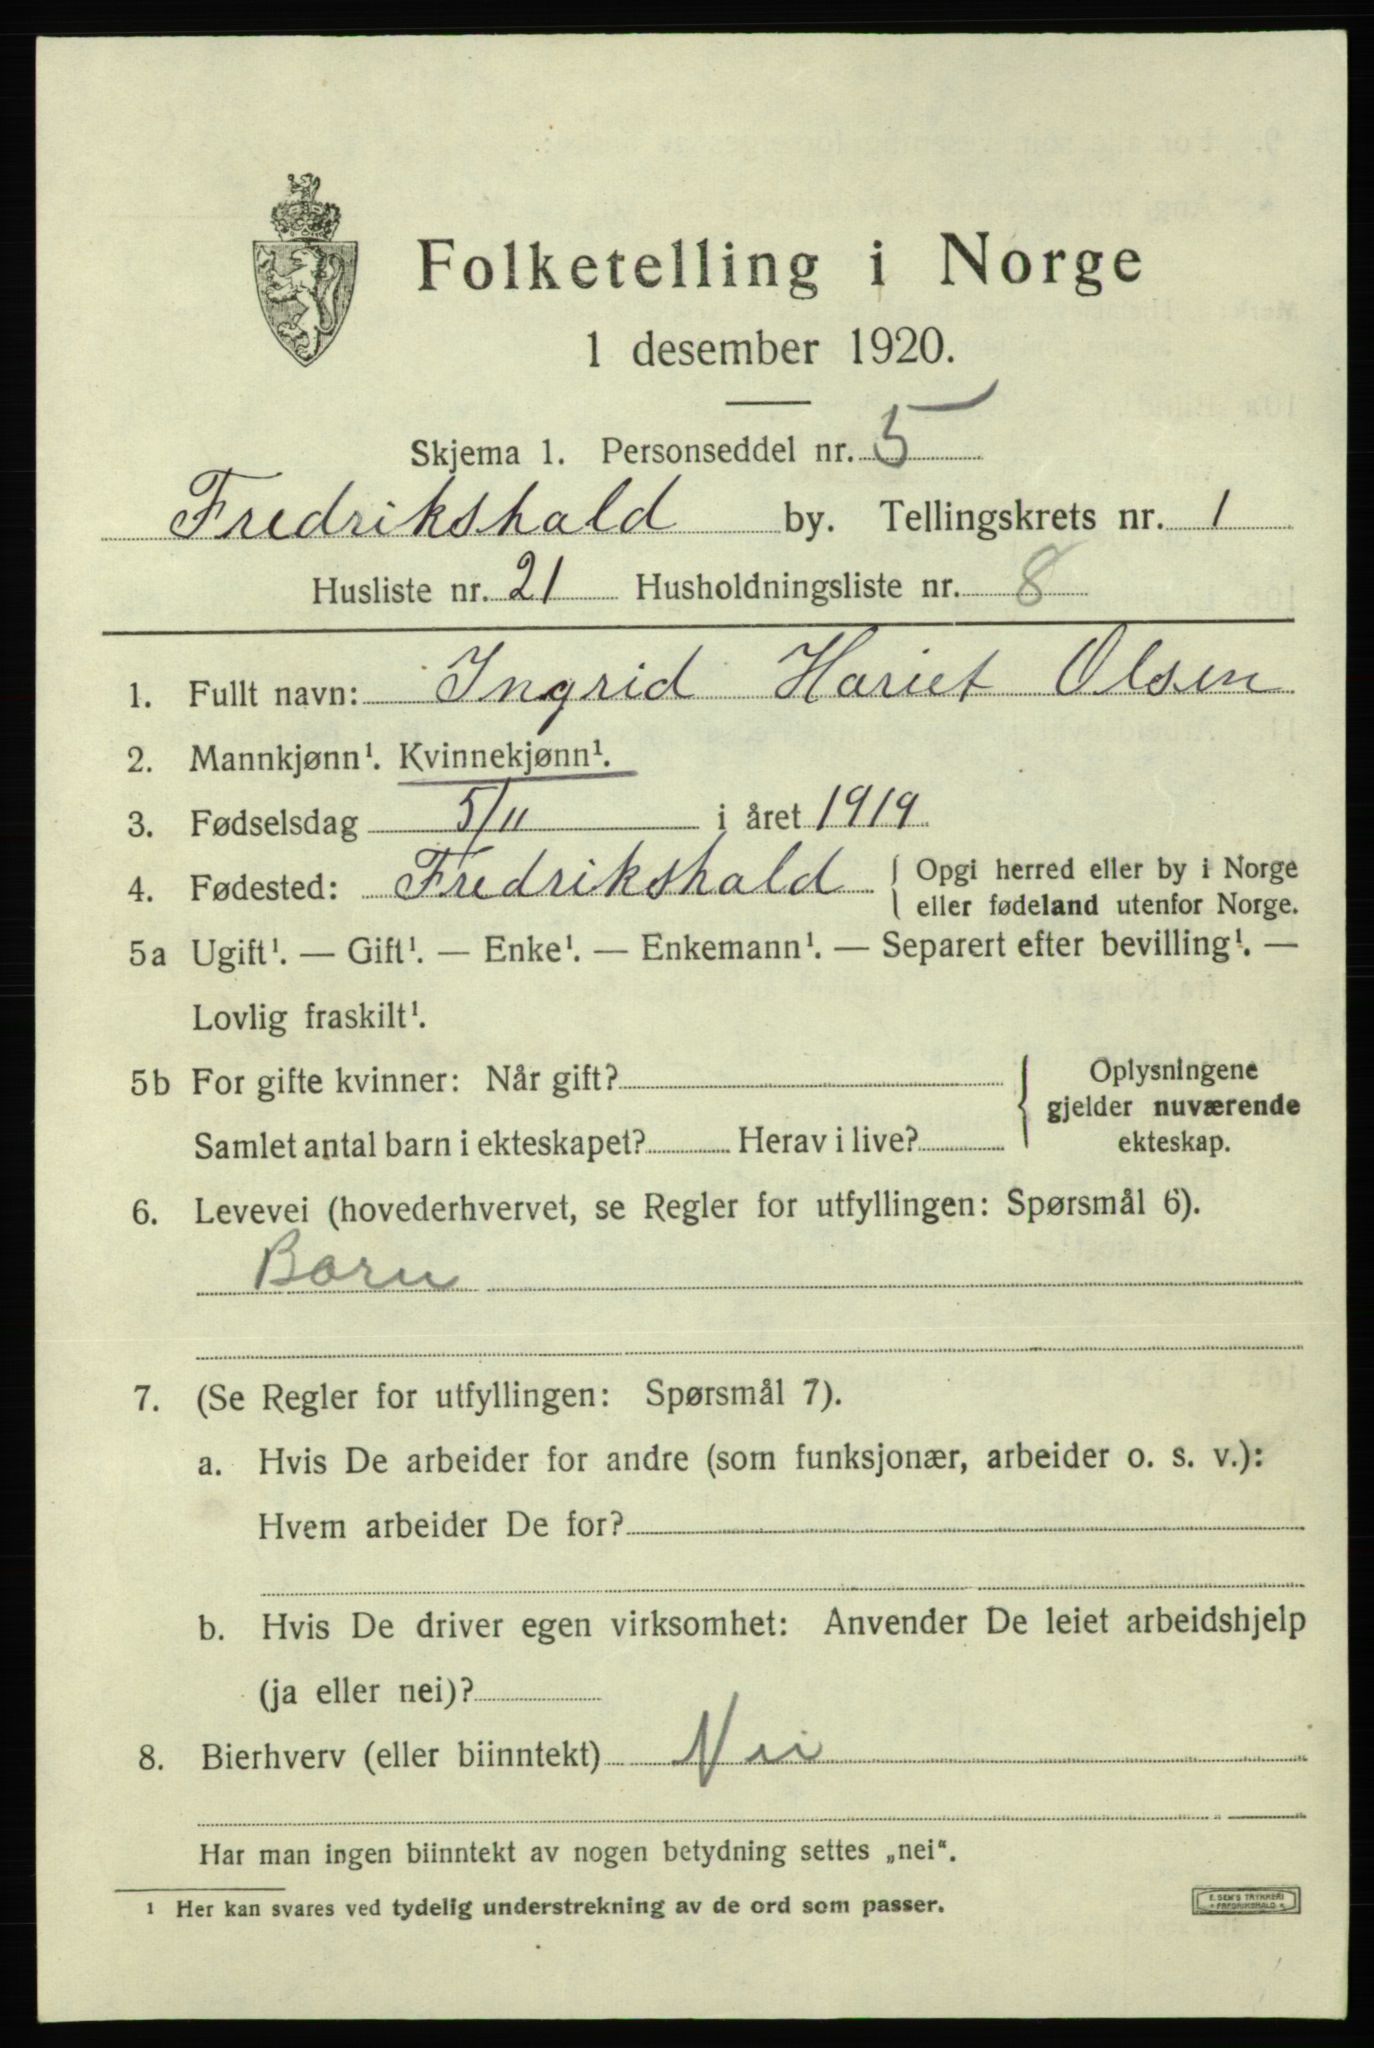 Folketelling i Norge
1 desember 1920.
Skjema 1. Personseddel nr. 5
Fredrikshald by. Tellingskrets nr. 1
Husliste nr. 21 Husholdningsliste nr. 8
1. Fullt navn: Ingrid Hariet Olsen
2. Mannkjønn¹. Kvinnekjønn¹.
3. Fødselsdag 5/11 i året 1919
4. Fødested: Fredrikshald { Opgi herred eller by i Norge
eller fødeland utenfor Norge.
5a Ugift¹. — Gift¹. — Enke¹. — Enkemann¹. — Separert efter bevilling¹. —
Lovlig fraskilt¹.
5b For gifte kvinner: Når gift? { Oplysningene
gjelder nuværende
Samlet antal barn i ekteskapet? Herav i live? ekteskap.
6. Levevei (hovederhvervet, se Regler for utfyllingen: Spørsmål 6).
Barn
7. (Se Regler for utfyllingen: Spørsmål 7).
a. Hvis De arbeider for andre (som funksjonær, arbeider o. s. v.):
Hvem arbeider De for?
b. Hvis De driver egen virksomhet: Anvender De leiet arbeidshjelp
(ja eller nei)?
8. Bierhverv (eller biinntekt) Nei
Har man ingen biinntekt av nogen betydning settes „nei“.
¹ Her kan svares ved tydelig understrekning av de ord som passer.
E. SEM'S TRYKKERI
FREDRIKSHALD